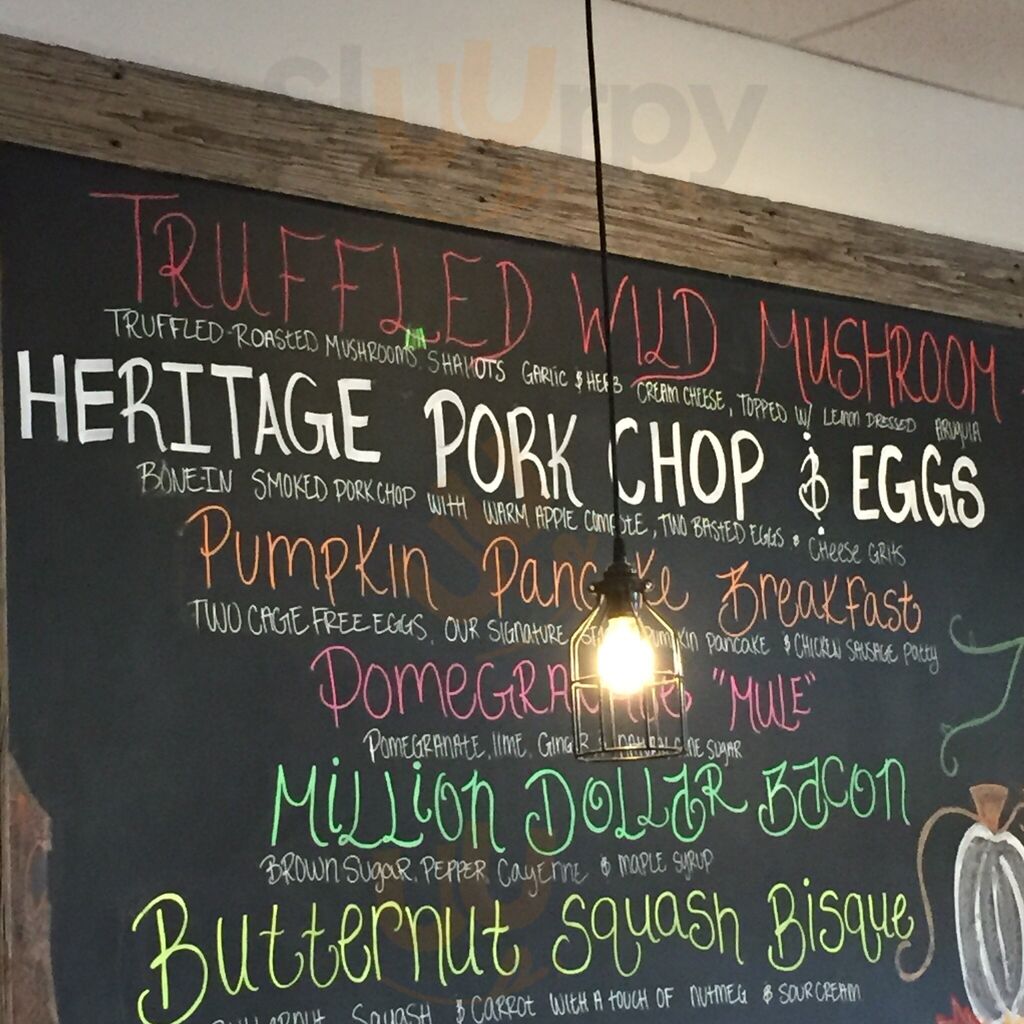 sluurpy
TRUFFLED WILD MUSHROOM
TRUFFLED-ROASTED MUSHROOMS, SHALLOTS GARLIC & HERB CREAM CHEESE, TOPPED W/ LEMON DRESSED ARUGULA
HERITAGE PORK CHOP & EGGS
BONE-IN SMOKED PORK CHOP WITH WARM APPLE COMPOTE, TWO BASTED EGGS & CHEESE GRITS
PUMPKIN Pancake Breakfast
TWO CAGE FREE EGGS, OUR SIGNATURE Pumpkin pancake & CHICKEN SAUSAGE Patty
POMEGRANATE "MULE"
POMEGRANATE, lIME, GINGER & NATURAL SUGAR
MiLLiON DOLLAR BACON
BROWN SUGAR, PEPPER, Cayenne & MAPLE SYRUP
Butternut Squash Bisque
BUTTERNUT SQUASH & CARROT WITH A TOUCH OF NUTMEG & SOUR CREAM